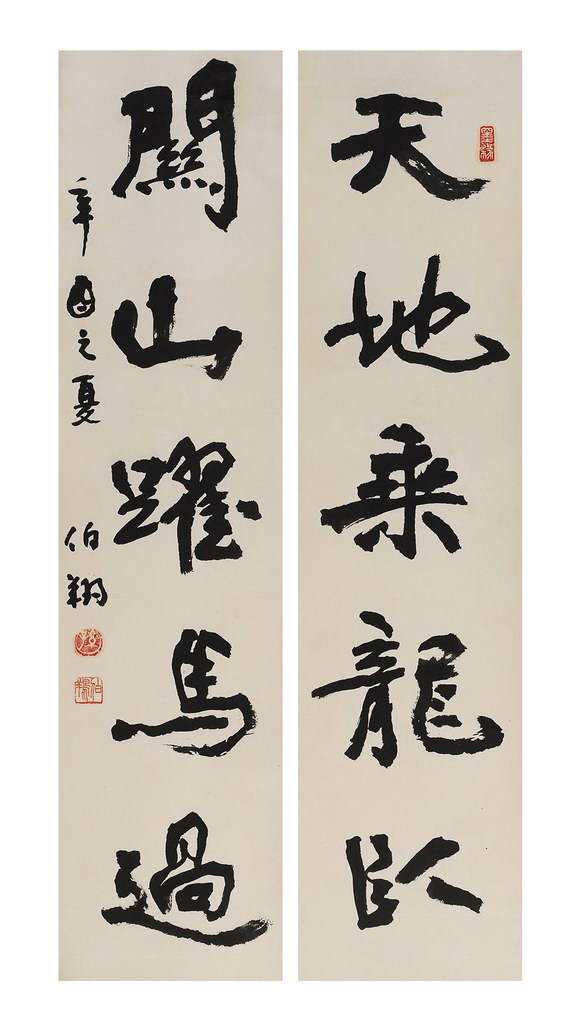 天地乘龍臥
關山躍馬過
辛酉之夏
伯翔